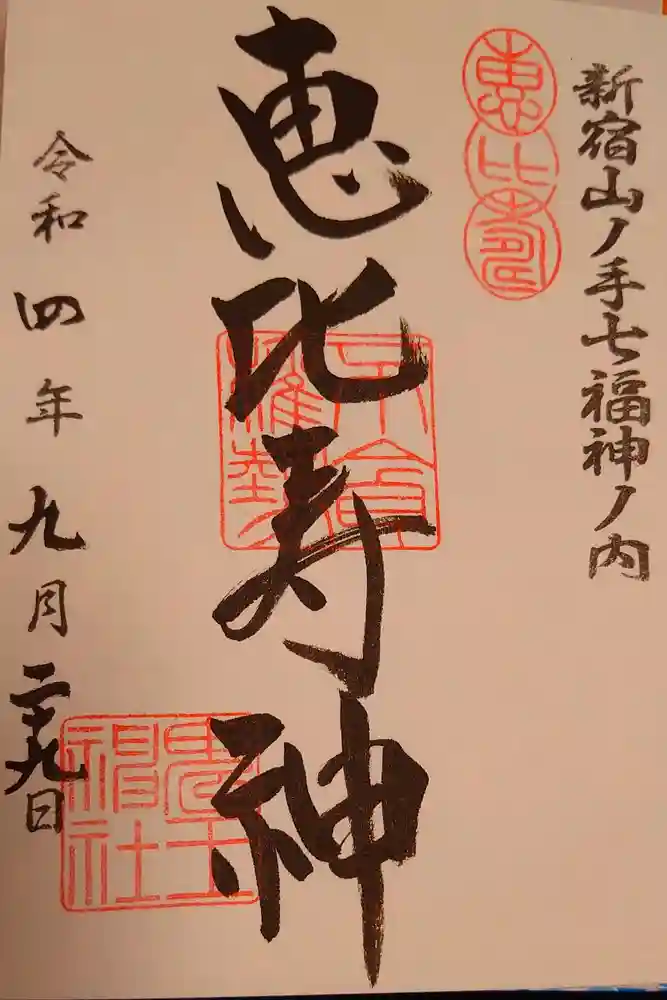 新宿山ノ手七福神ノ内
惠比壽
恵比寿神
鬼王
神社
令和四年九月二十九日